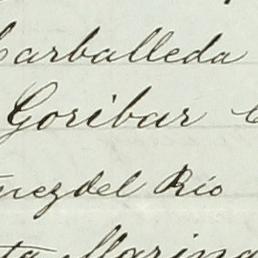 Carballeda
Goribar
del Rio
Marina